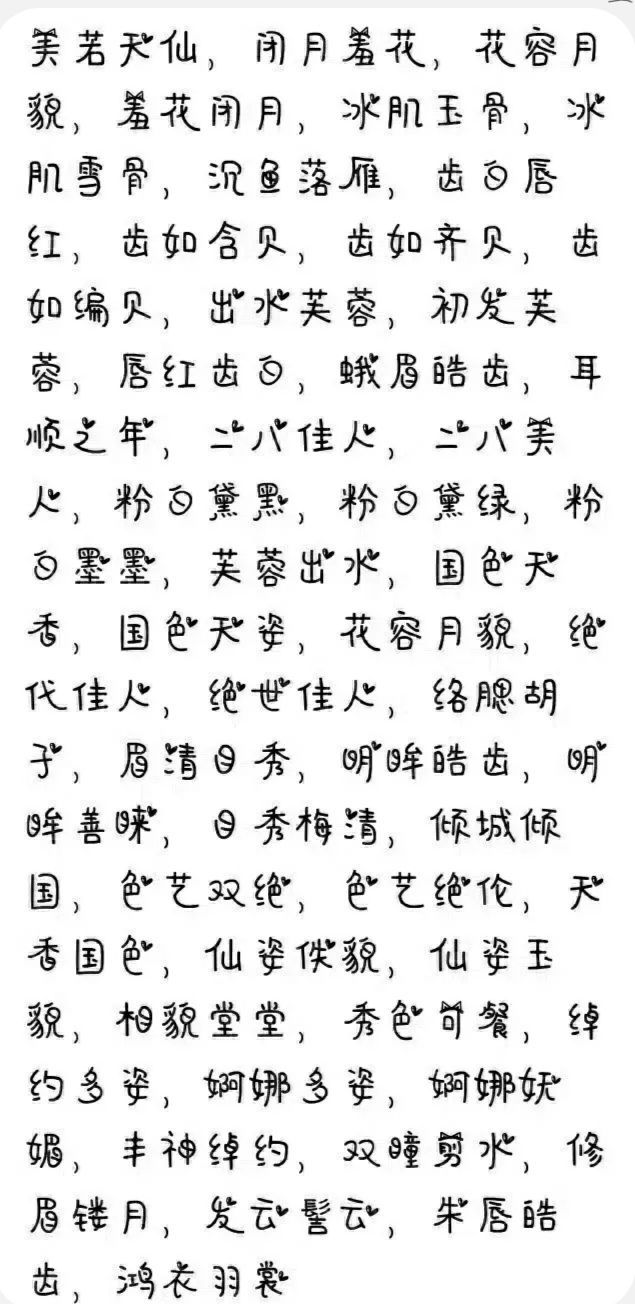 美若天仙，闭月羞花，花容月
貌，羞花闭月，冰肌玉骨，冰
肌雪骨，沉鱼落雁，齿白唇
红，齿如含贝，齿如齐贝，齿
如编贝，出水芙蓉，初发芙
蓉，唇红齿白，蛾眉皓齿，耳
顺之年，二八佳人，二八美
人，粉白黛黑，粉白黛绿，粉
白墨墨，芙蓉出水，国色天
香，国色天姿，花容月貌，绝
代佳人，绝世佳人，络腮胡
子，眉清目秀，明眸皓齿，明
眸善睐，目秀梅清，倾城倾
国，色艺双绝，色艺绝伦，天
香国色，仙姿佚貌，仙姿玉
貌，相貌堂堂，秀色可餐，绰
约多姿，婀娜多姿，婀娜妩
媚，丰神绰约，双瞳剪水，修
眉镂月，发云髻云，朱唇皓
齿，鸿衣羽裳